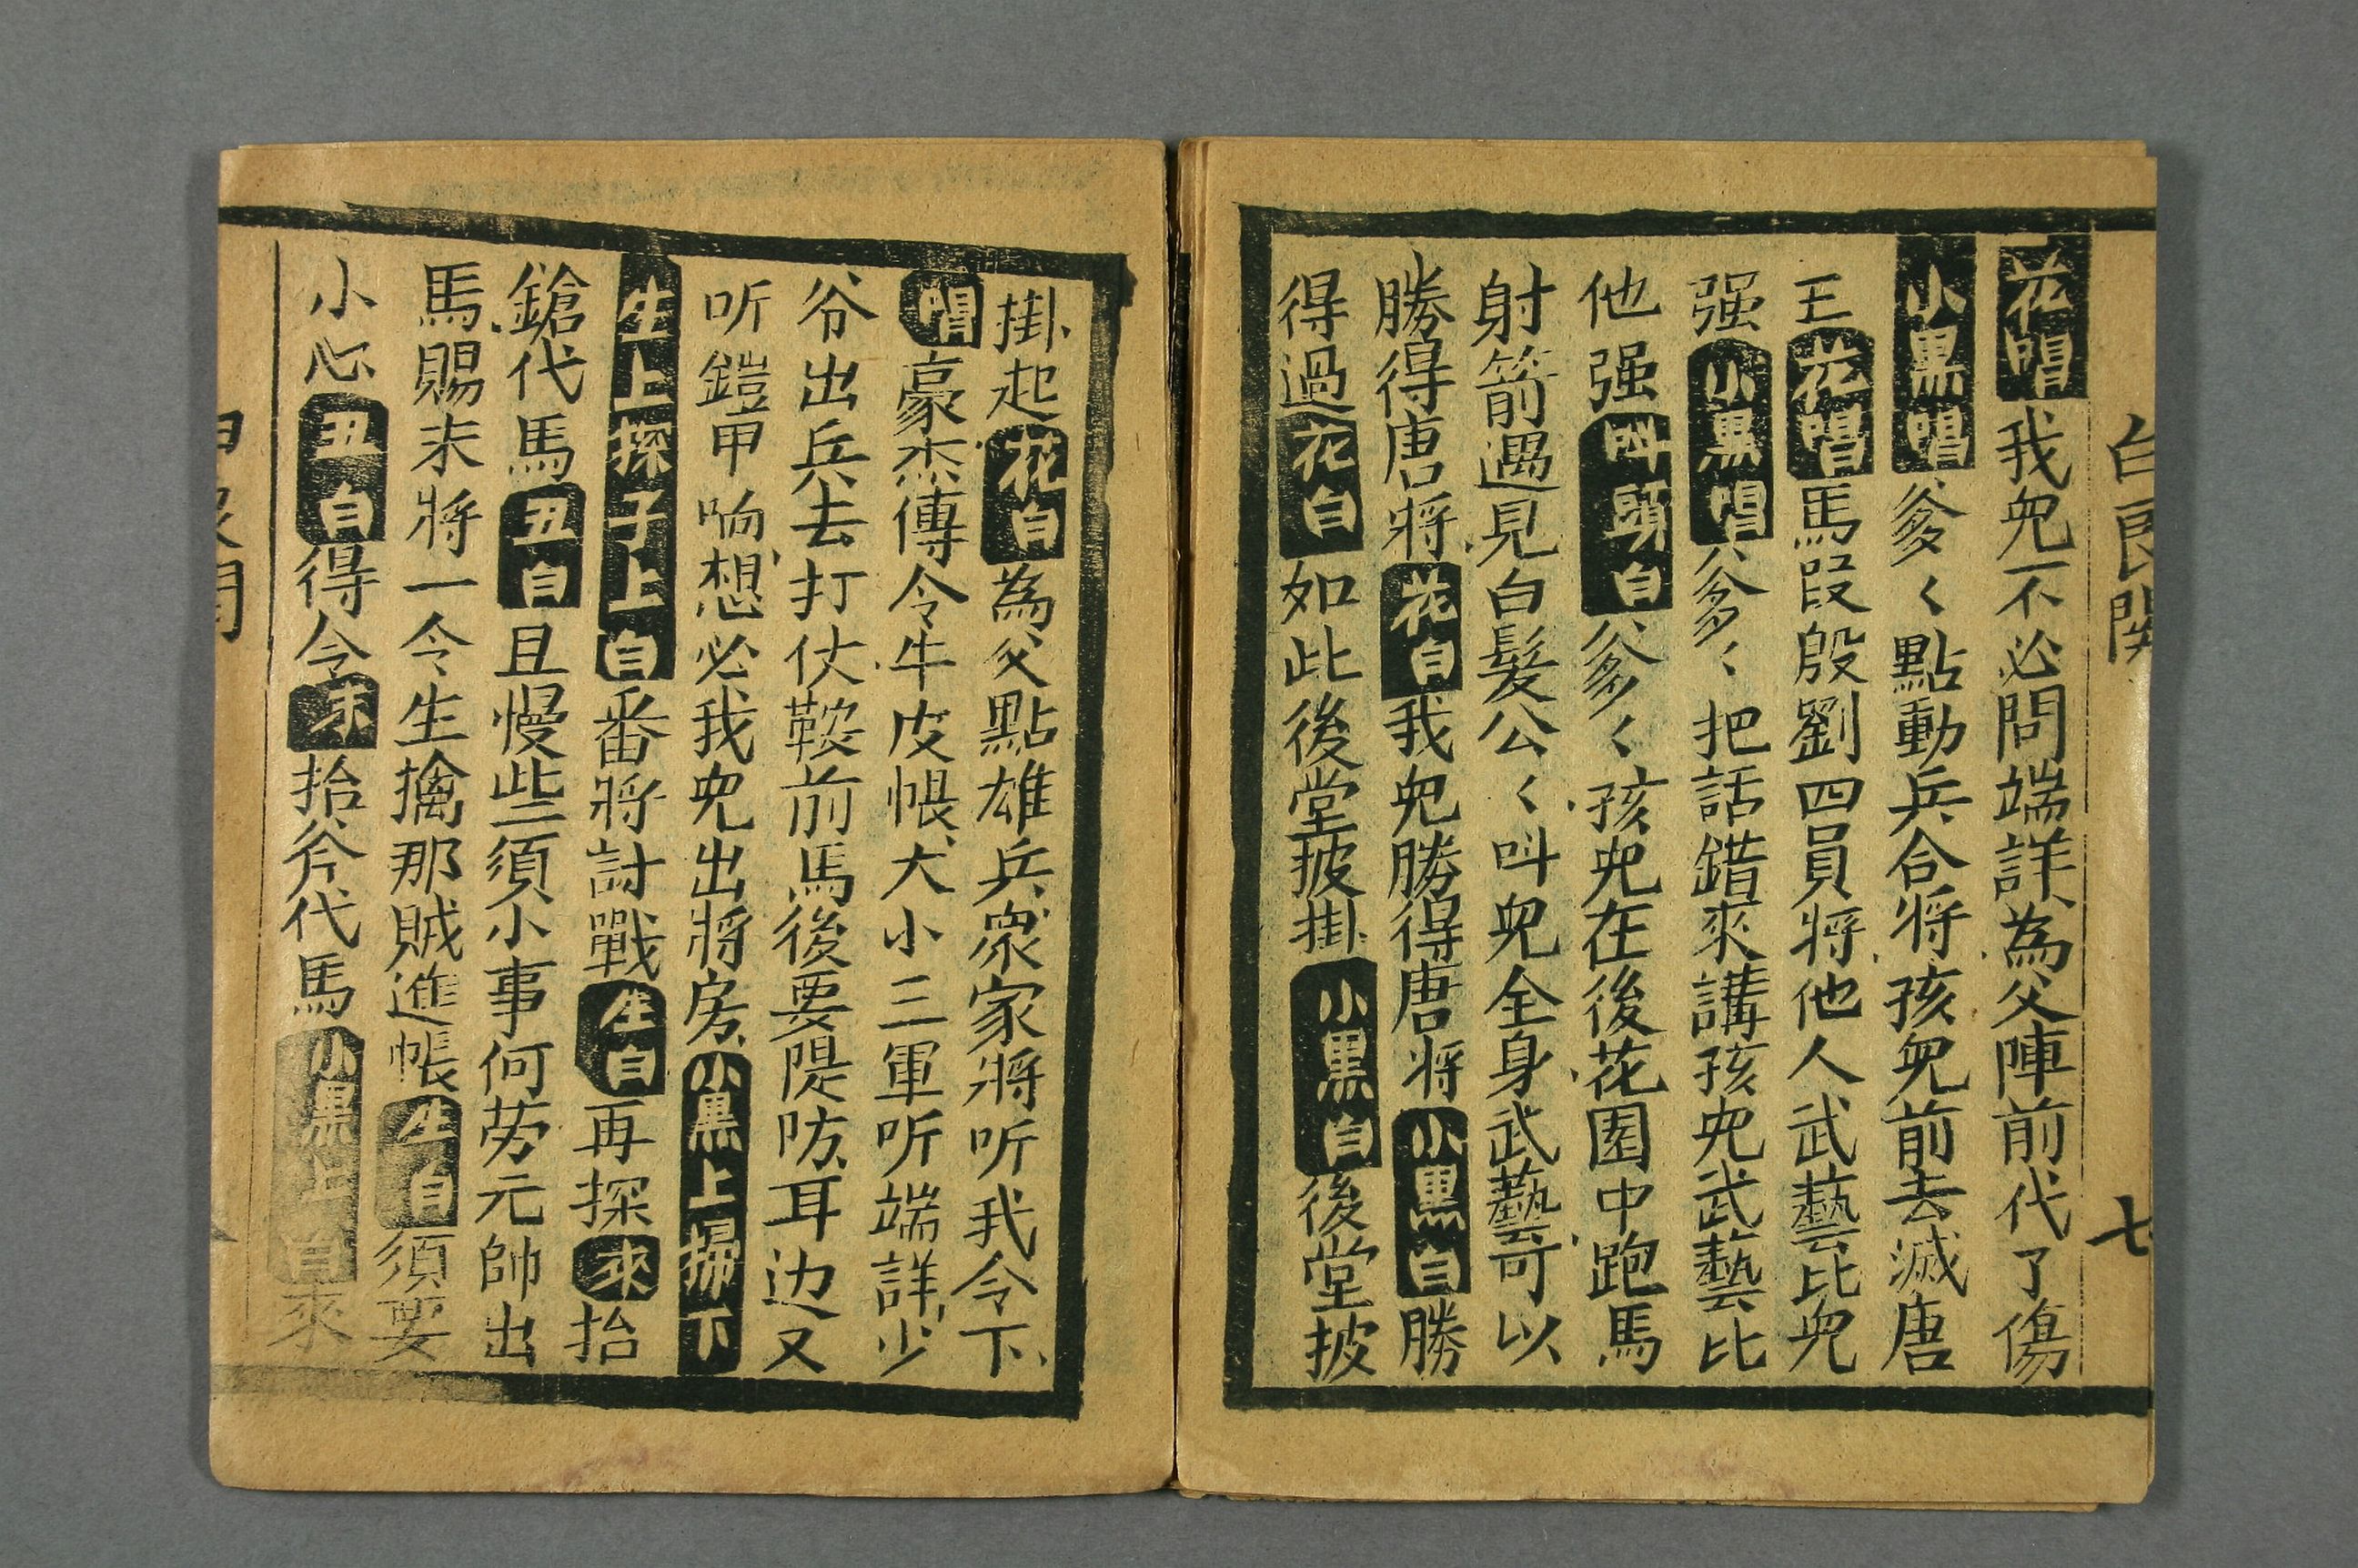 白良関
七
花唱我兒不必問端詳為父陣前代了傷
小黒唱爹〻點動兵合將孩兒前去滅唐
王花唱馬段殷劉四員將他人武藝比兒
强小黒唱爹〻把話錯來講孩兒武藝比
他强呌頭白爹〻孩兒在後花園中跑馬
射箭遇見白髪公〻呌兒全身武藝可以
勝得唐將花白我兒勝得唐將小黒白勝
得過花白如此後堂披掛小黒白後堂披
掛起花白為父點雄兵衆家將听我令下
唱豪杰傳令牛皮帳大小三軍听端詳少
爷出兵去打仗鞍前馬後要隄防耳边又
听鎧甲响想必我兒出將房小黒上掃下
生上探子上白番將討戰生白再探來抬
鎗代馬丑白且慢些須小事何劳元帥出
馬賜末將一令生擒那賊進帳生白須要
小心丑白得令末抬斧代馬小黒上白來